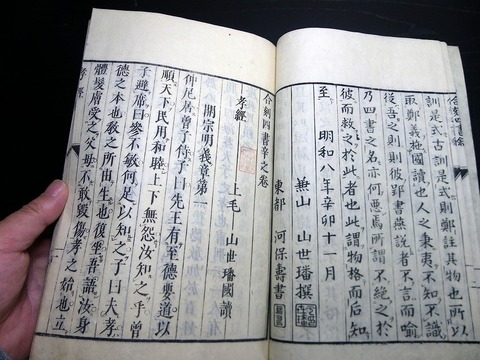 訓是式古訓是式則鄭註其物也所以
取鄭義施國讀也人之秉夷不知不識
從吾之則則彼郢書燕說者不言而喻
乃四書之名亦何惡焉所謂不絶之於
彼而救之於此者也此謂物格而后知
至 明和八年辛卯十一月
兼山 山世璠撰
東都 河保壽書
合刻四書辛之卷
孝經 上毛 山世璠國讀
開宗明義章第一
仲尼居曾子侍子曰先王有至德要道以
順天下民用和睦上下無怨汝知之乎曾
子避席曰參不敏何足以知之子曰夫孝
德之本也敎之所由生也復坐吾語汝身
體髮膚受之父母不敢毀傷孝之始也立
孝經 一